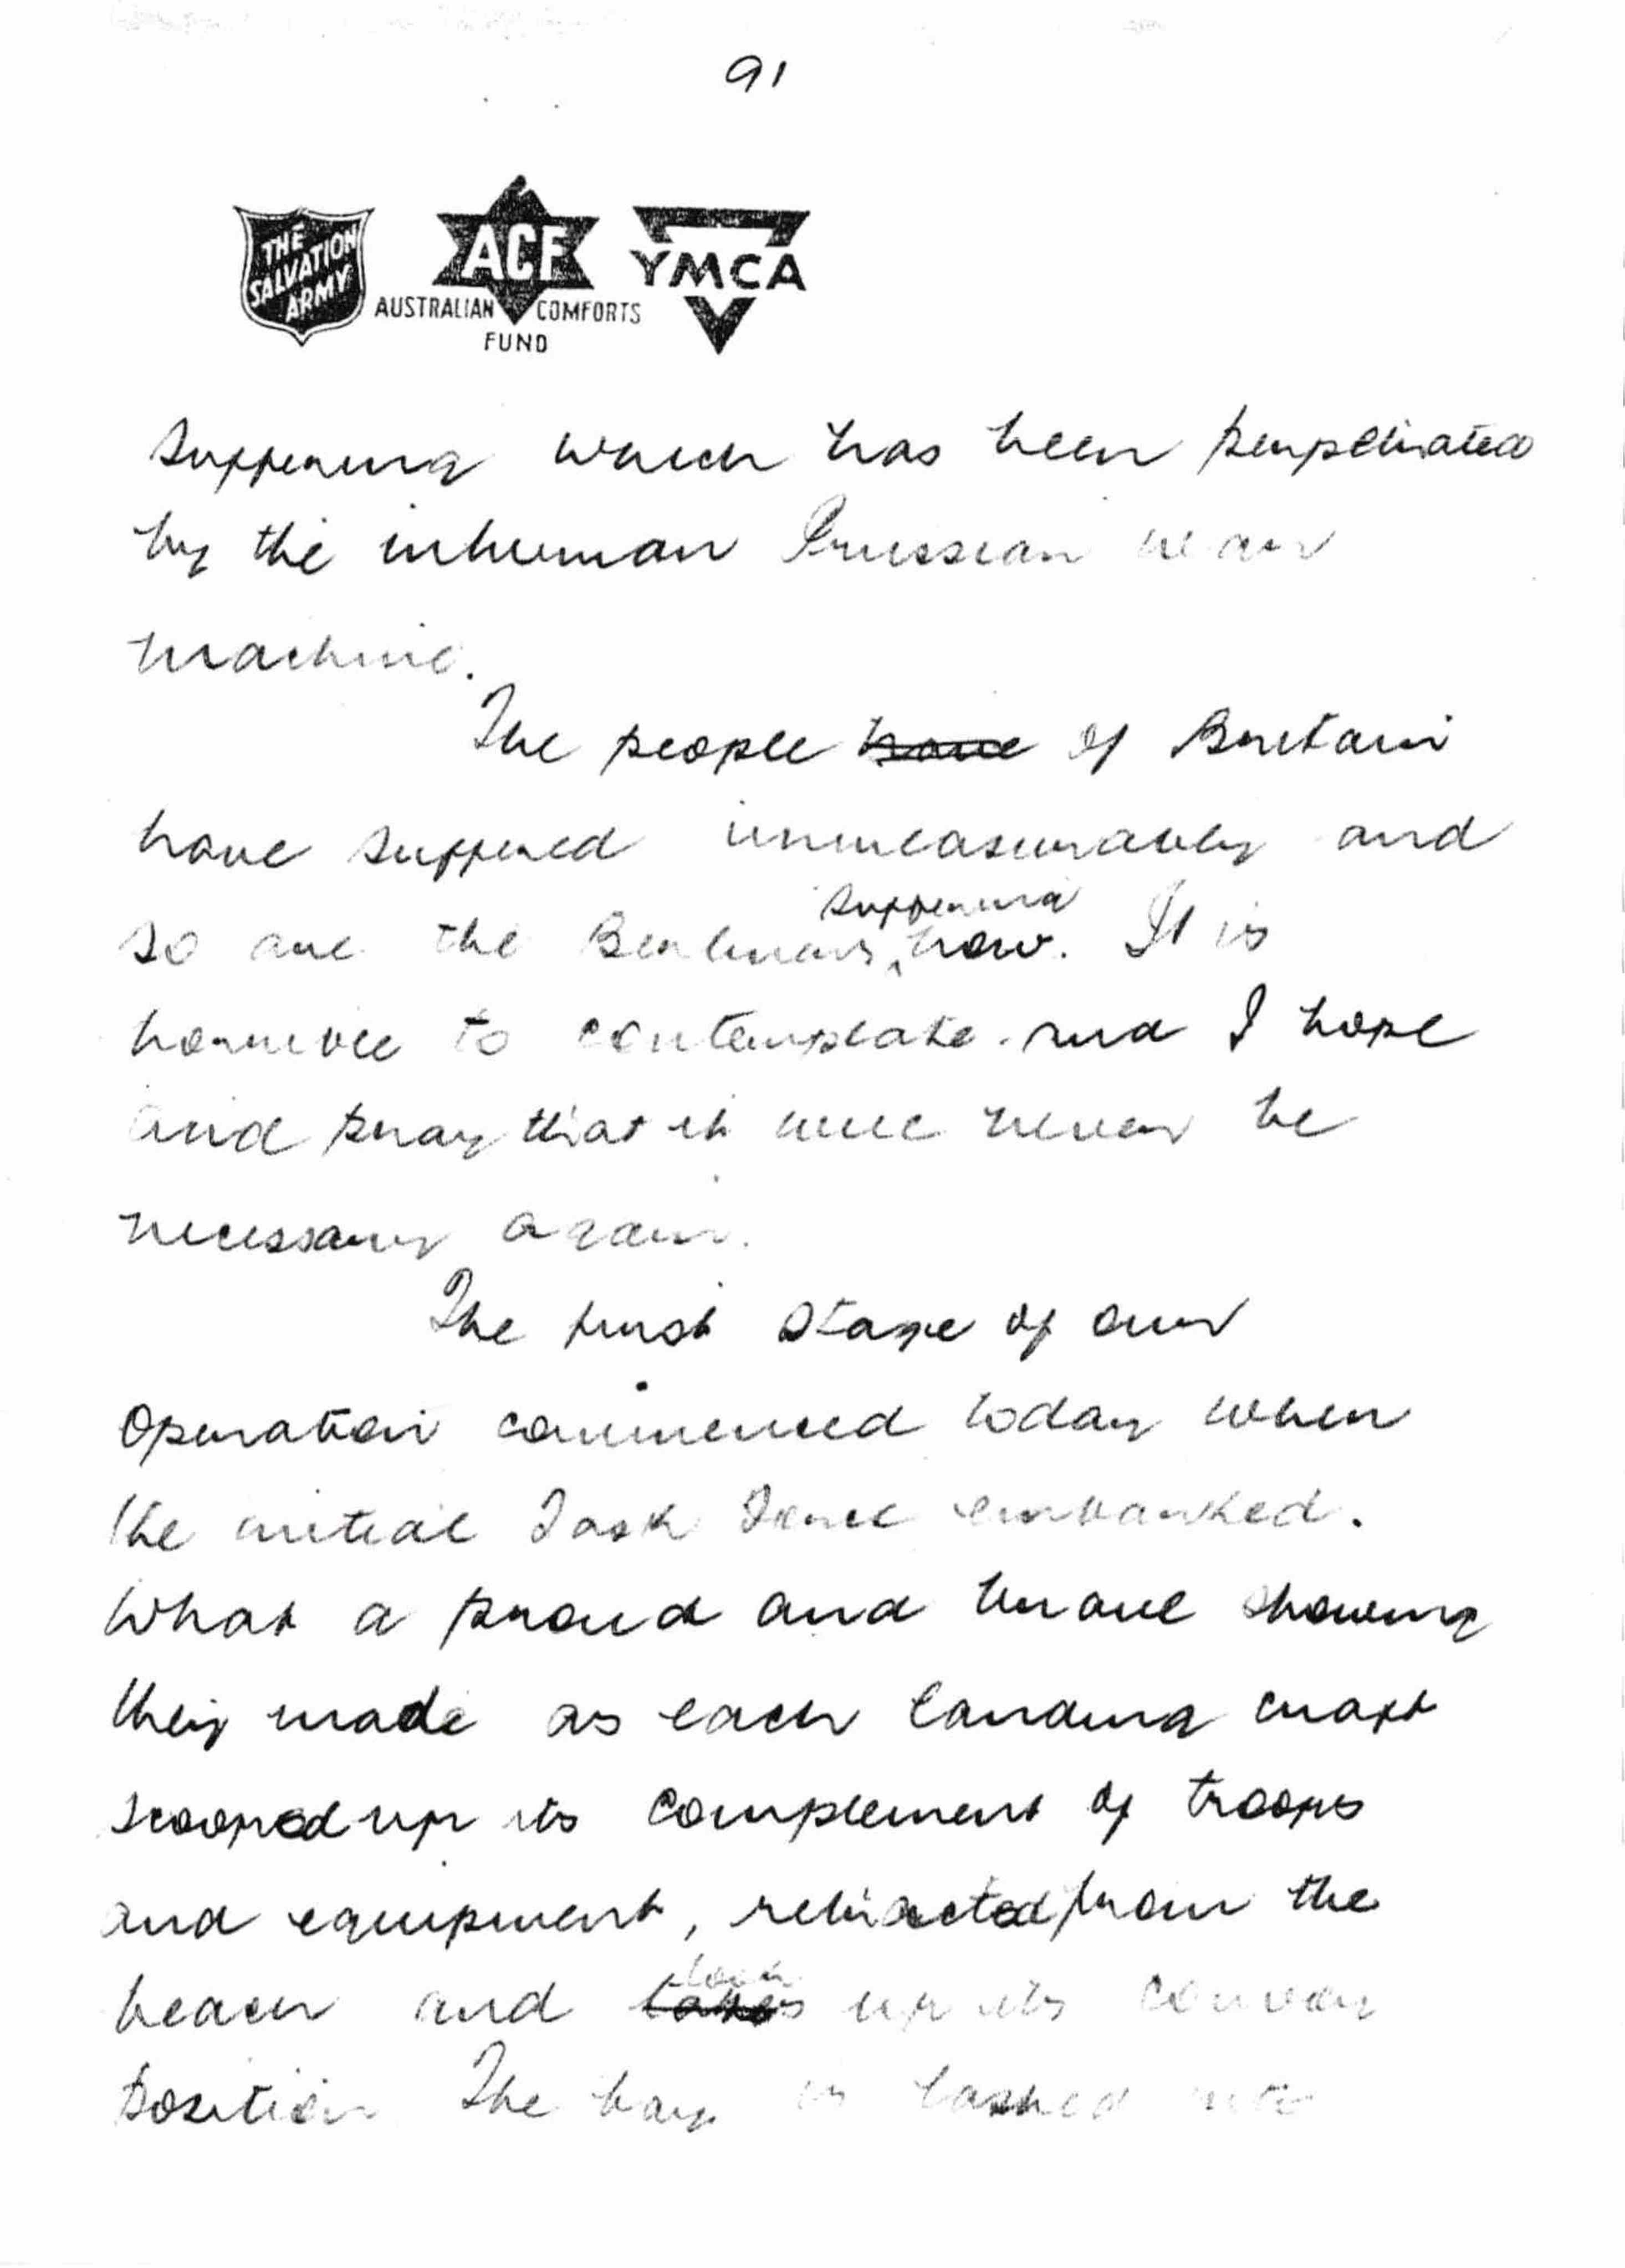 91
THE SALVATION ARMY
ACF
AUSTRALIAN COMFORTS FUND
YMCA
suffering which has been perpetrated
by the inhuman Prussian war
machine.
The people have of Britain
have suffered unmeasurably and
so are the Berliners suffering now. It is
horrible to contemplate and I hope
and pray that it will never be
necessary again.
The first stage of our
Operation commenced today when
the initial Task Force embarked.
What a proud and brave showing
they made as each landing craft
scooped up its complement of troops
and equipment, retracted from the
beach and takes took up its convoy
position The bay is lashed into